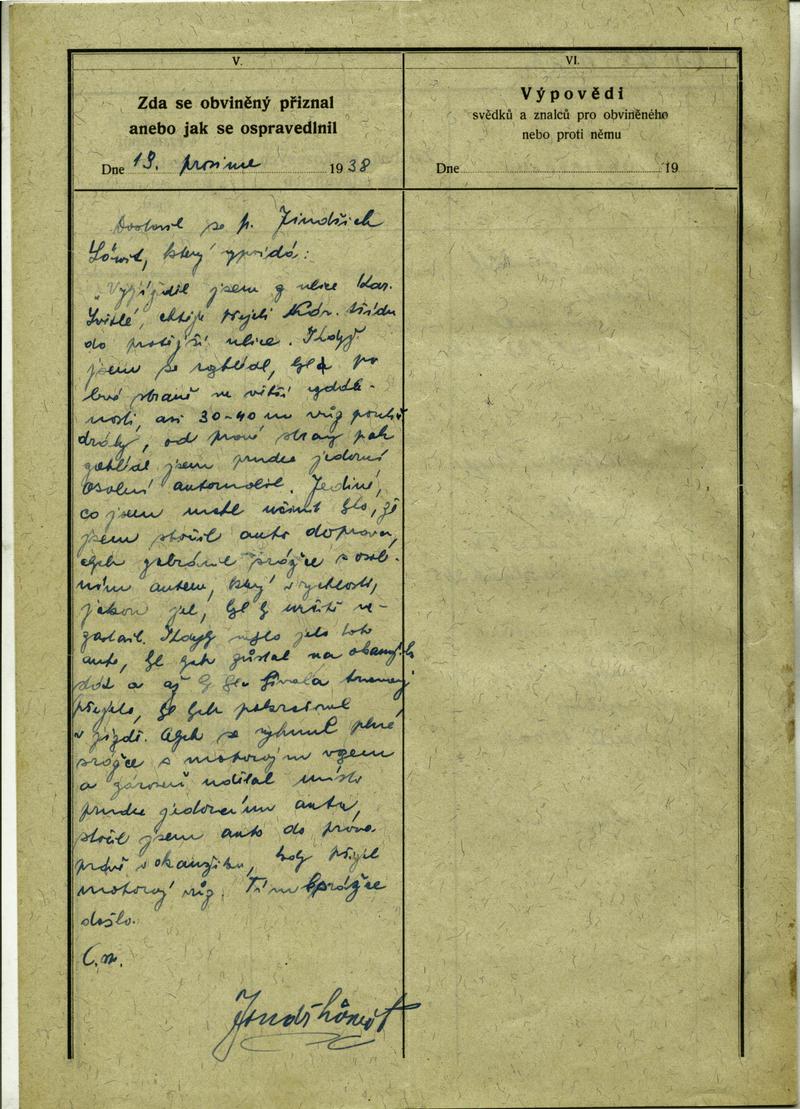 V.
Zda se obviněný přiznal
anebo jak se ospravedlnil
Dne 19. prosince 1938
VI.
Výpovědi
svědků a znalců pro obviněného
nebo proti němu
Dne 19
Dostavil se p. Jindřich
Löwit, který vypvídá:
"Vyjížděl jsem z ulice Kar.
Světlé, chtěje přejeti Nár. třídu
do protější ulice. Když
jsem se rozhlédl, byl po
levé straně ve větší vzdále-
nosti, asi 30-40 m vůz poulič
dráhy, od pravé strany pak
zahlédl jsem prudce jedoucí
osobní automobil. Jediné,
co jsem mohl učinit bylo, že
jsem stočil auto doprava,
abych zabránil srážce s osob-
ním autem, který v rychlosti,
jakou jel, byl by určitě ne-
zastavil. Kdyby nebylo jelo toto
auto, byl bych zůstal na okamžik
stát a až by byla bývala tramvaj
přejela, byl bych pokračoval
v jízdě. Abych se vyhnul plné
srážce s motorovým vozem
a zároveň udělal místo
prudce jedoucímu autu,
stočil jsem auto do prava
právě v okamžiku, kdy přijel
motorový vůz. Tím k srážce
došlo.
Jindř Löwit